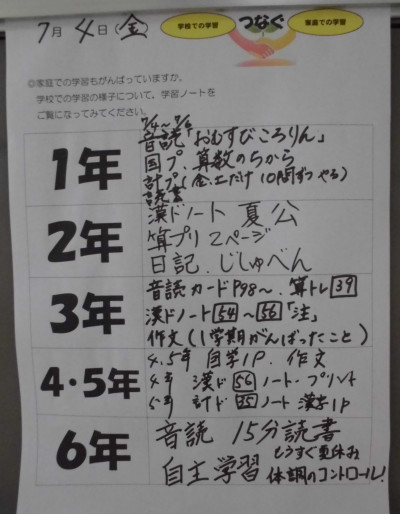 7月 4日(金)
学校での学習
つなぐ
家庭での学習
◎家庭での学習もがんばっていますか。
学校での学習の様子について、学習ノートを
ご覧になってみてください。
1年
7/4~7/6
音読「おむすびころりん」
国プ. 算数のちから
計プ(金.土だけ 10問ずつ やる)
読書
2年
漢ドノート 夏 公
算プリ 2ページ
日記. じしゅべん
3年
音読カードP98~. 算トレ 39
漢ドノート 54 ~ 56 「注」
作文(1学期がんばったこと)
4・5年
4.5年 自学1P. 作文
4年 漢ド 56 ノート・プリント
5年 計ド 25 ノート 漢字1P
6年
音読 15分読書
自主学習
もうすぐ夏休み
体調のコントロール!